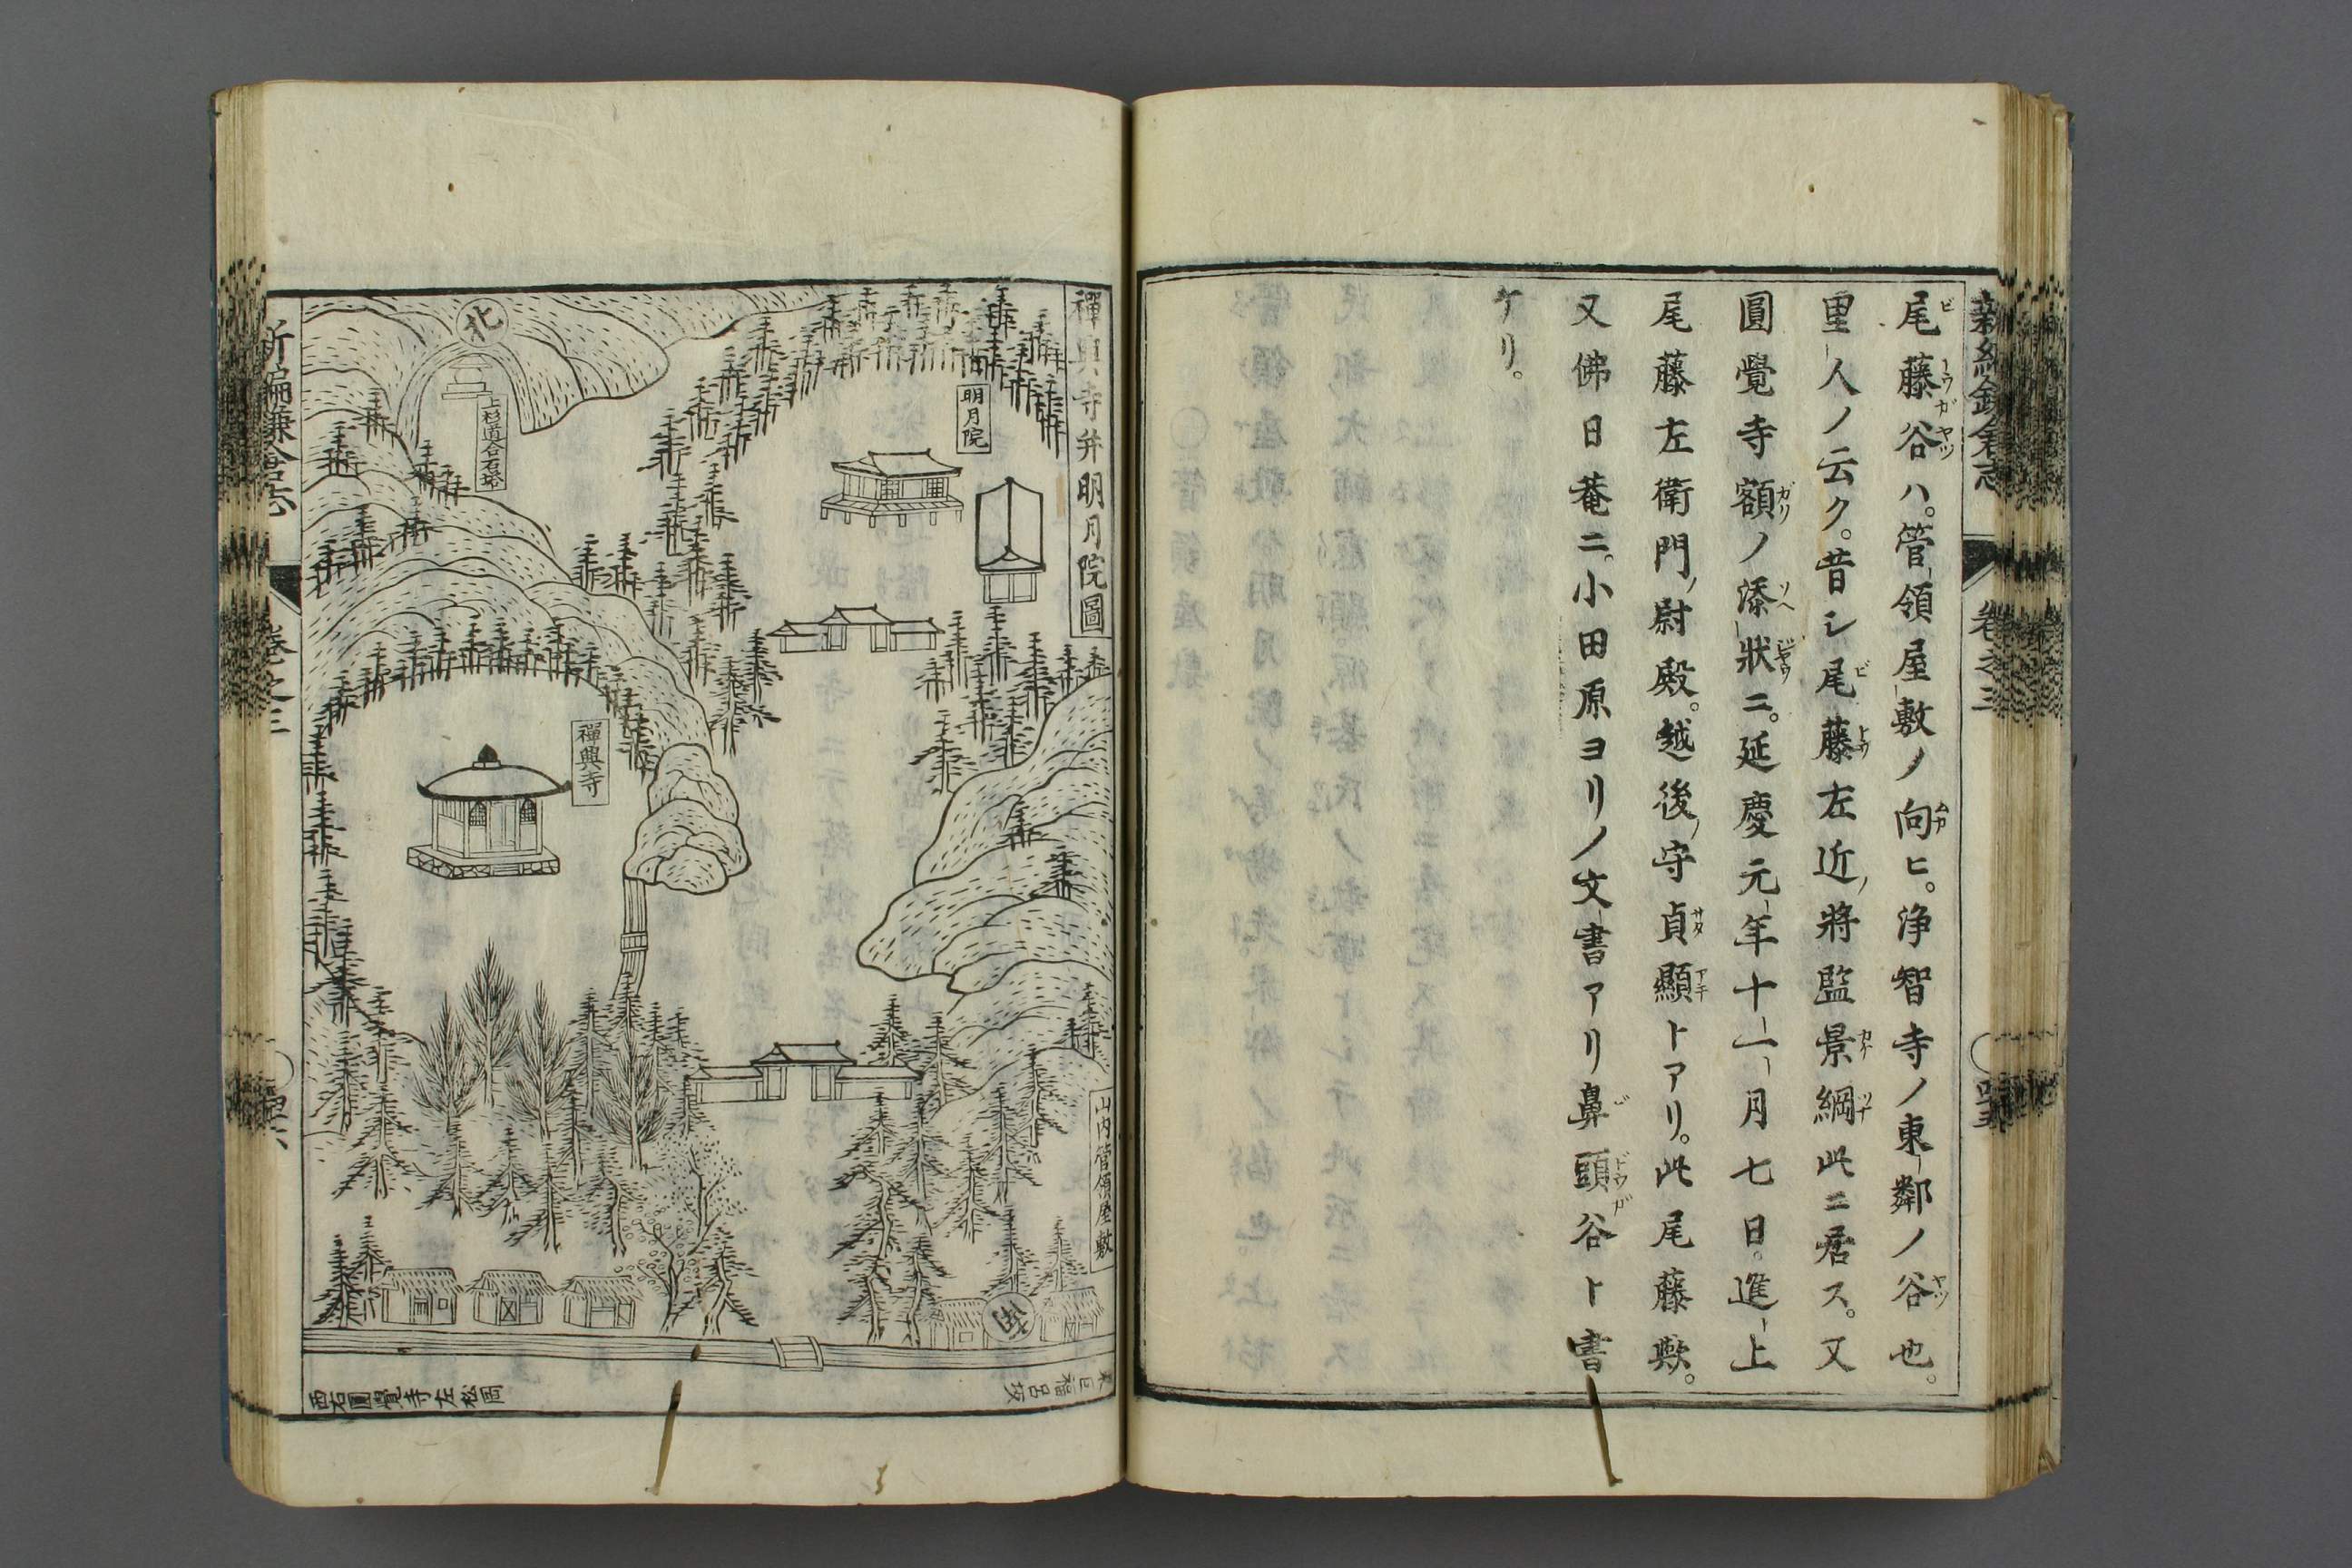 新編鎌倉志
卷之三
尾藤谷ハ。管領屋敷ノ向ヒ。淨智寺ノ東鄰ノ谷也。
里人ノ云ク。昔シ尾藤左近ノ將監景綱此ニ居ス。又
圓覺寺額ノ添狀ニ。延慶元年十一月七日。進上
尾藤左衛門ノ尉殿。越後ノ守貞顯トアリ。此尾藤歟。
又佛日菴ニ。小田原ヨリノ文書アリ鼻頭谷ト書
ケリ。
禪興寺幷明月院圖
明月院
北
上杉道合石塔
禪興寺
山内管領屋敷
西右圓覺寺左松岡
新編鎌倉志
卷之三